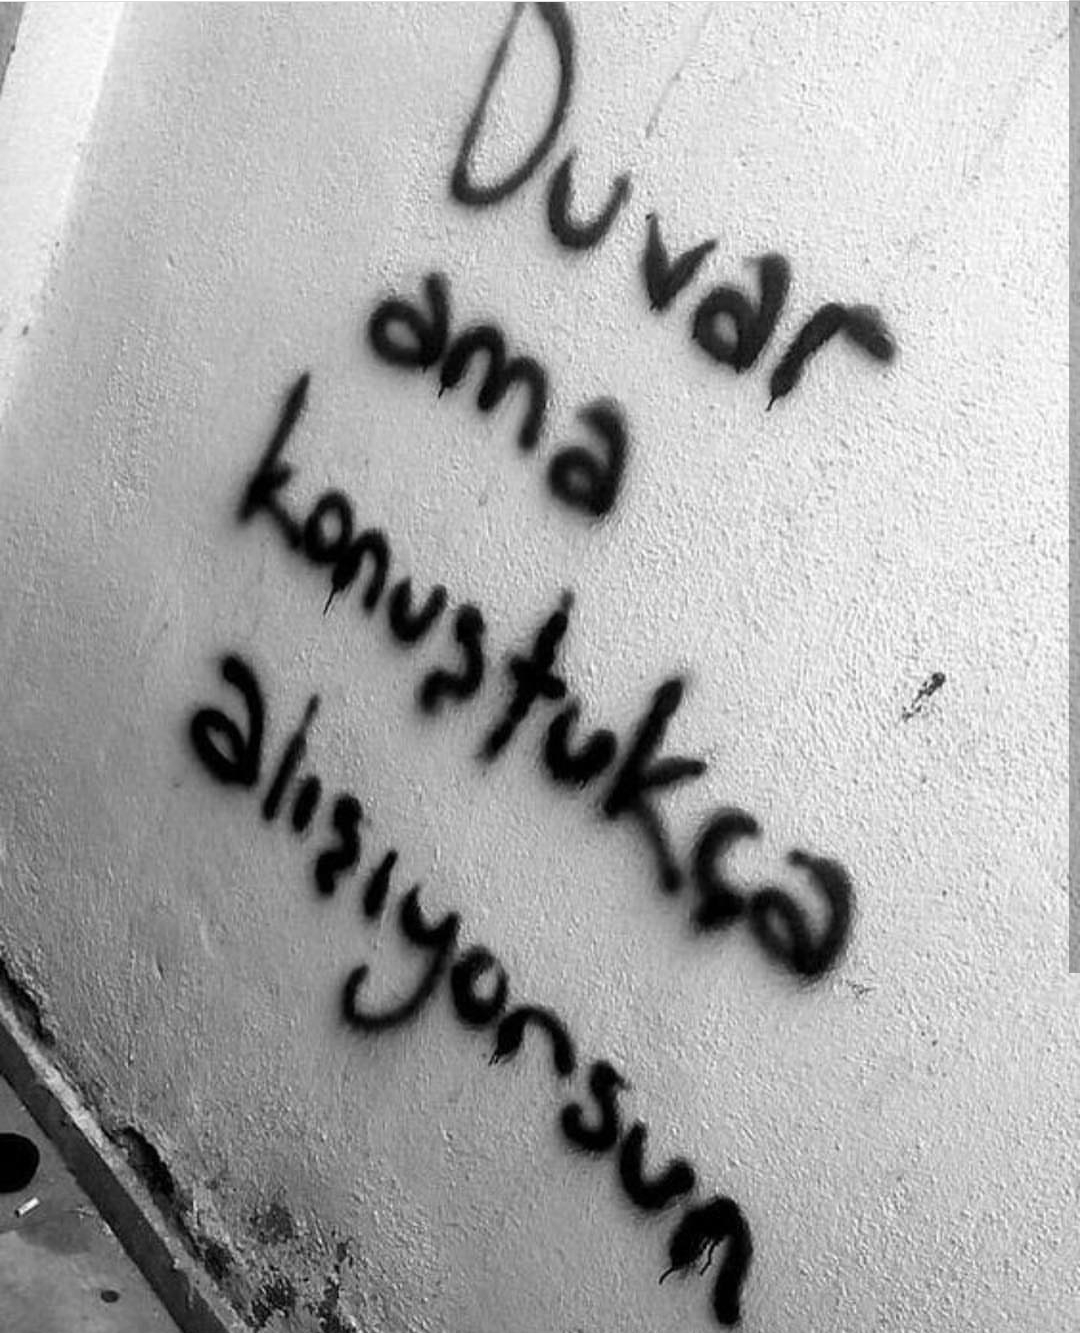 Duvar
ama
konuştukça
alışıyorsun